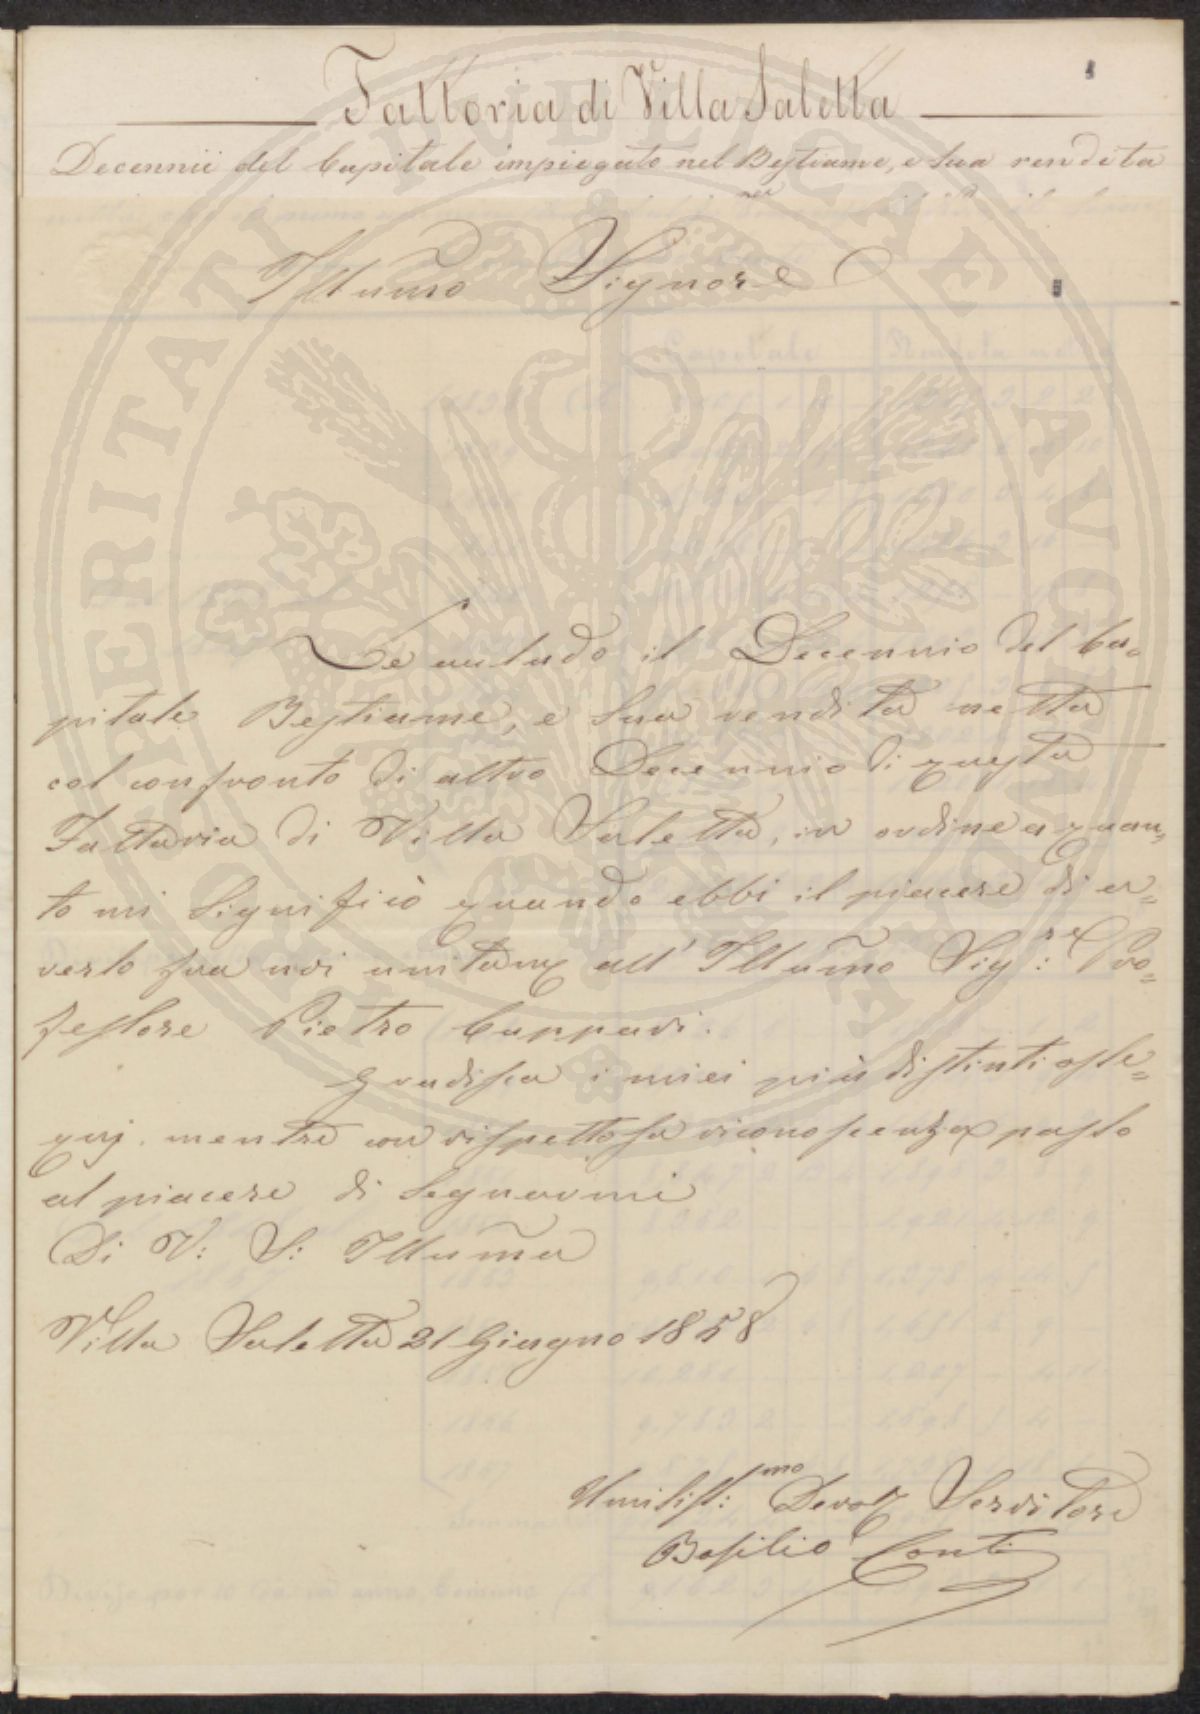 Fattoria di Villa Saletta
Decennii del Capitale impiegato nel Bestiame, e sua rendita
Illustrmo Signore
Le accludo il Decennio del Ca=
pitale Bestiame, e sua rendita netta
col confronto di altro Decennio di questa
Fattoria di Villa Saletta, in ordine a quan=
to mi significò quando ebbi il piacere di a=
verlo fra noi unitamte all' Illumo Sig:re Pro=
fessore Pietro Cuppari.
Gradisca i miei più distinti osse=
quj. mentre con rispettosa riconoscenza passo
al piacere di segnarmi
Di V: S: Illuma
Villa Saletta 21 Giugno 1858
Umiliss:mo Devot Servitore
Basilio Conti
PROSPERITATI PUBLICAE AVGENDAE
Capitale Rendita netta